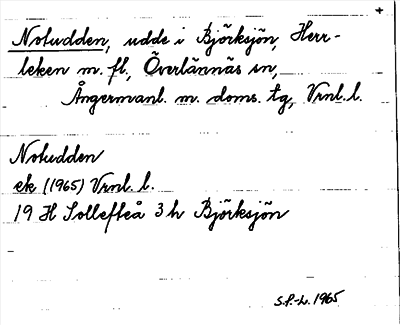 +
Notudden, udde i Björksjön, Herr-
leken m. fl., Överlännäs sn,
Ångermanl. m. doms. tg, Vrnl. l.
Notudden
ek (1965) Vrnl. l.
19 H Sollefteå 3 h Björksjön
S.P.-L. 1965